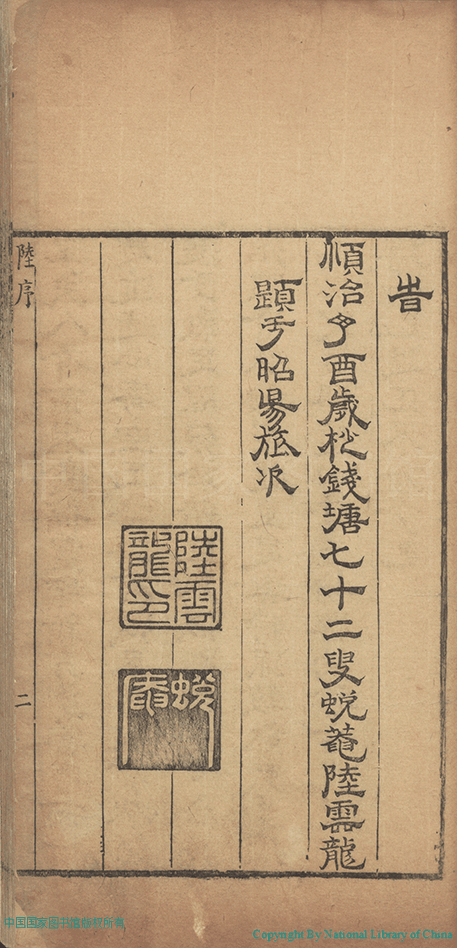 旹
順治丁酉歲杪錢塘七十二叟蛻菴陸雲龍
題于昭昜旅次
陸雲龍印
蛻庵
陸序
二
中国国家图书馆版权所有
Copyright By National Library of China